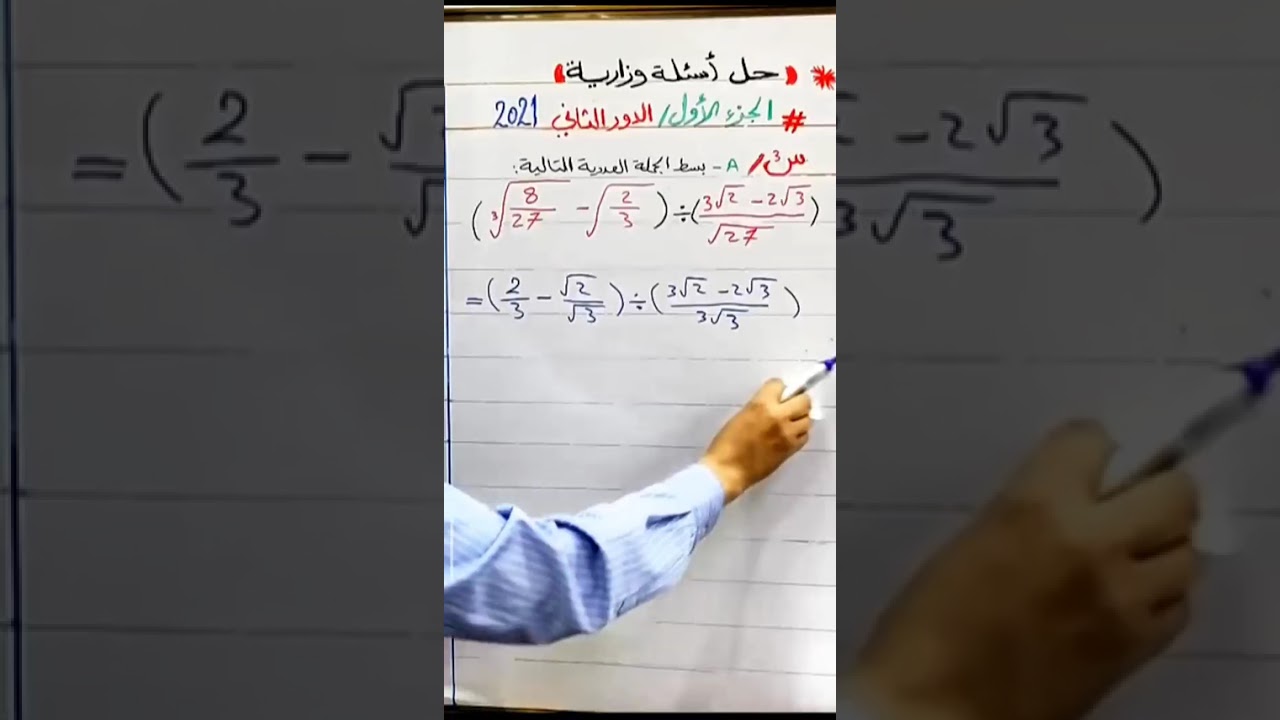 * (حل أسئلة وزارية)
# الجزء الأول / الدور الثاني 2021
س3 / A - بسط الجملة العددية التالية:
(∛(8/27) - √(2/3)) ÷ ((3√2 - 2√3)/√27)
= (2/3 - √2/√3) ÷ ((3√2 - 2√3)/(3√3))